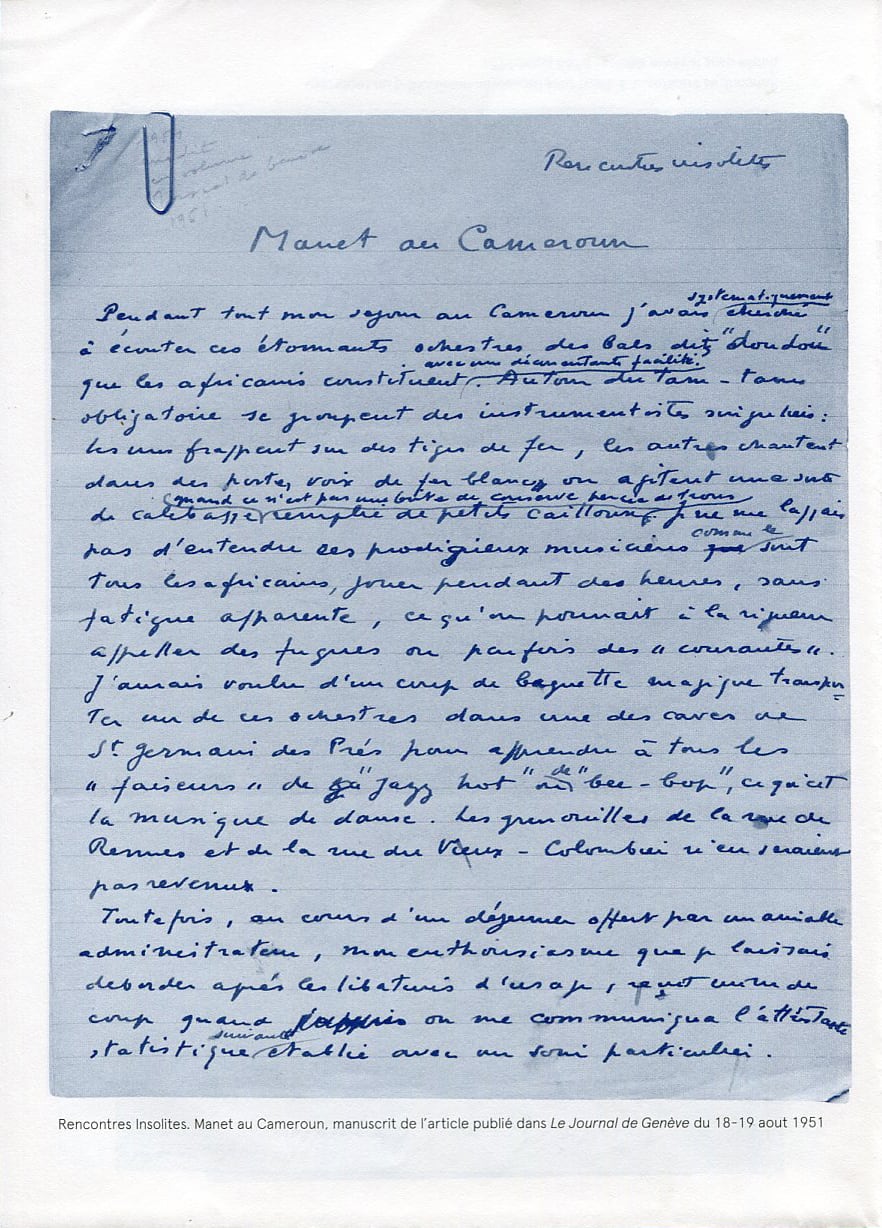 7
1951
inédit
en volume
Journal de Genève
1951
Rencontres insolites
Manet au Cameroun
systématiquement
Pendant tout mon sejour au Cameroun j'avais cherché
à écouter ces étonnants ochestres des bals dits "doudou"
avec une déconcertante facilité.
que les africains constituent. Autour du tam-tam
obligatoire se groupent des instrumentistes singuliers :
les uns frappent sur des tiges de fer, les autres chantent
dans des portes voix de fer blanc, ou agitent une sorte
quand ce n'est pas une boîte de conserve percée de trous
de calebasse remplie de petits cailloux. Je ne me lassais
comme le
pas d'entendre ces prodigieux musiciens que sont
tous les africains, jouer pendant des heures, sans
fatigue apparente, ce qu'on pourrait à la rigueur
appeller des fugues ou parfois des "courantes".
J'aurais voulu d'un coup de baguette magique transpor-
ter un de ces ochestres dans une des caves de
St Germain des Prés pour apprendre à tous les
"faiseurs" de "Jazz hot" ou de "bee-bop", ce qu'est
la musique de danse. Les grenouilles de la rue de
Rennes et de la rue du Vieux-Colombier n'en seraient
pas revenues.
Toutefois, au cours d'un déjeuner offert par un aimable
administrateur, mon enthousiasme que je laissais
deborder après les libations d'usage, reçut un rude
coup quand j'appris on me communiqua l'attristante
suivante
statistique établie avec un soin particulier.
Rencontres Insolites. Manet au Cameroun, manuscrit de l'article publié dans Le Journal de Genève du 18-19 aout 1951